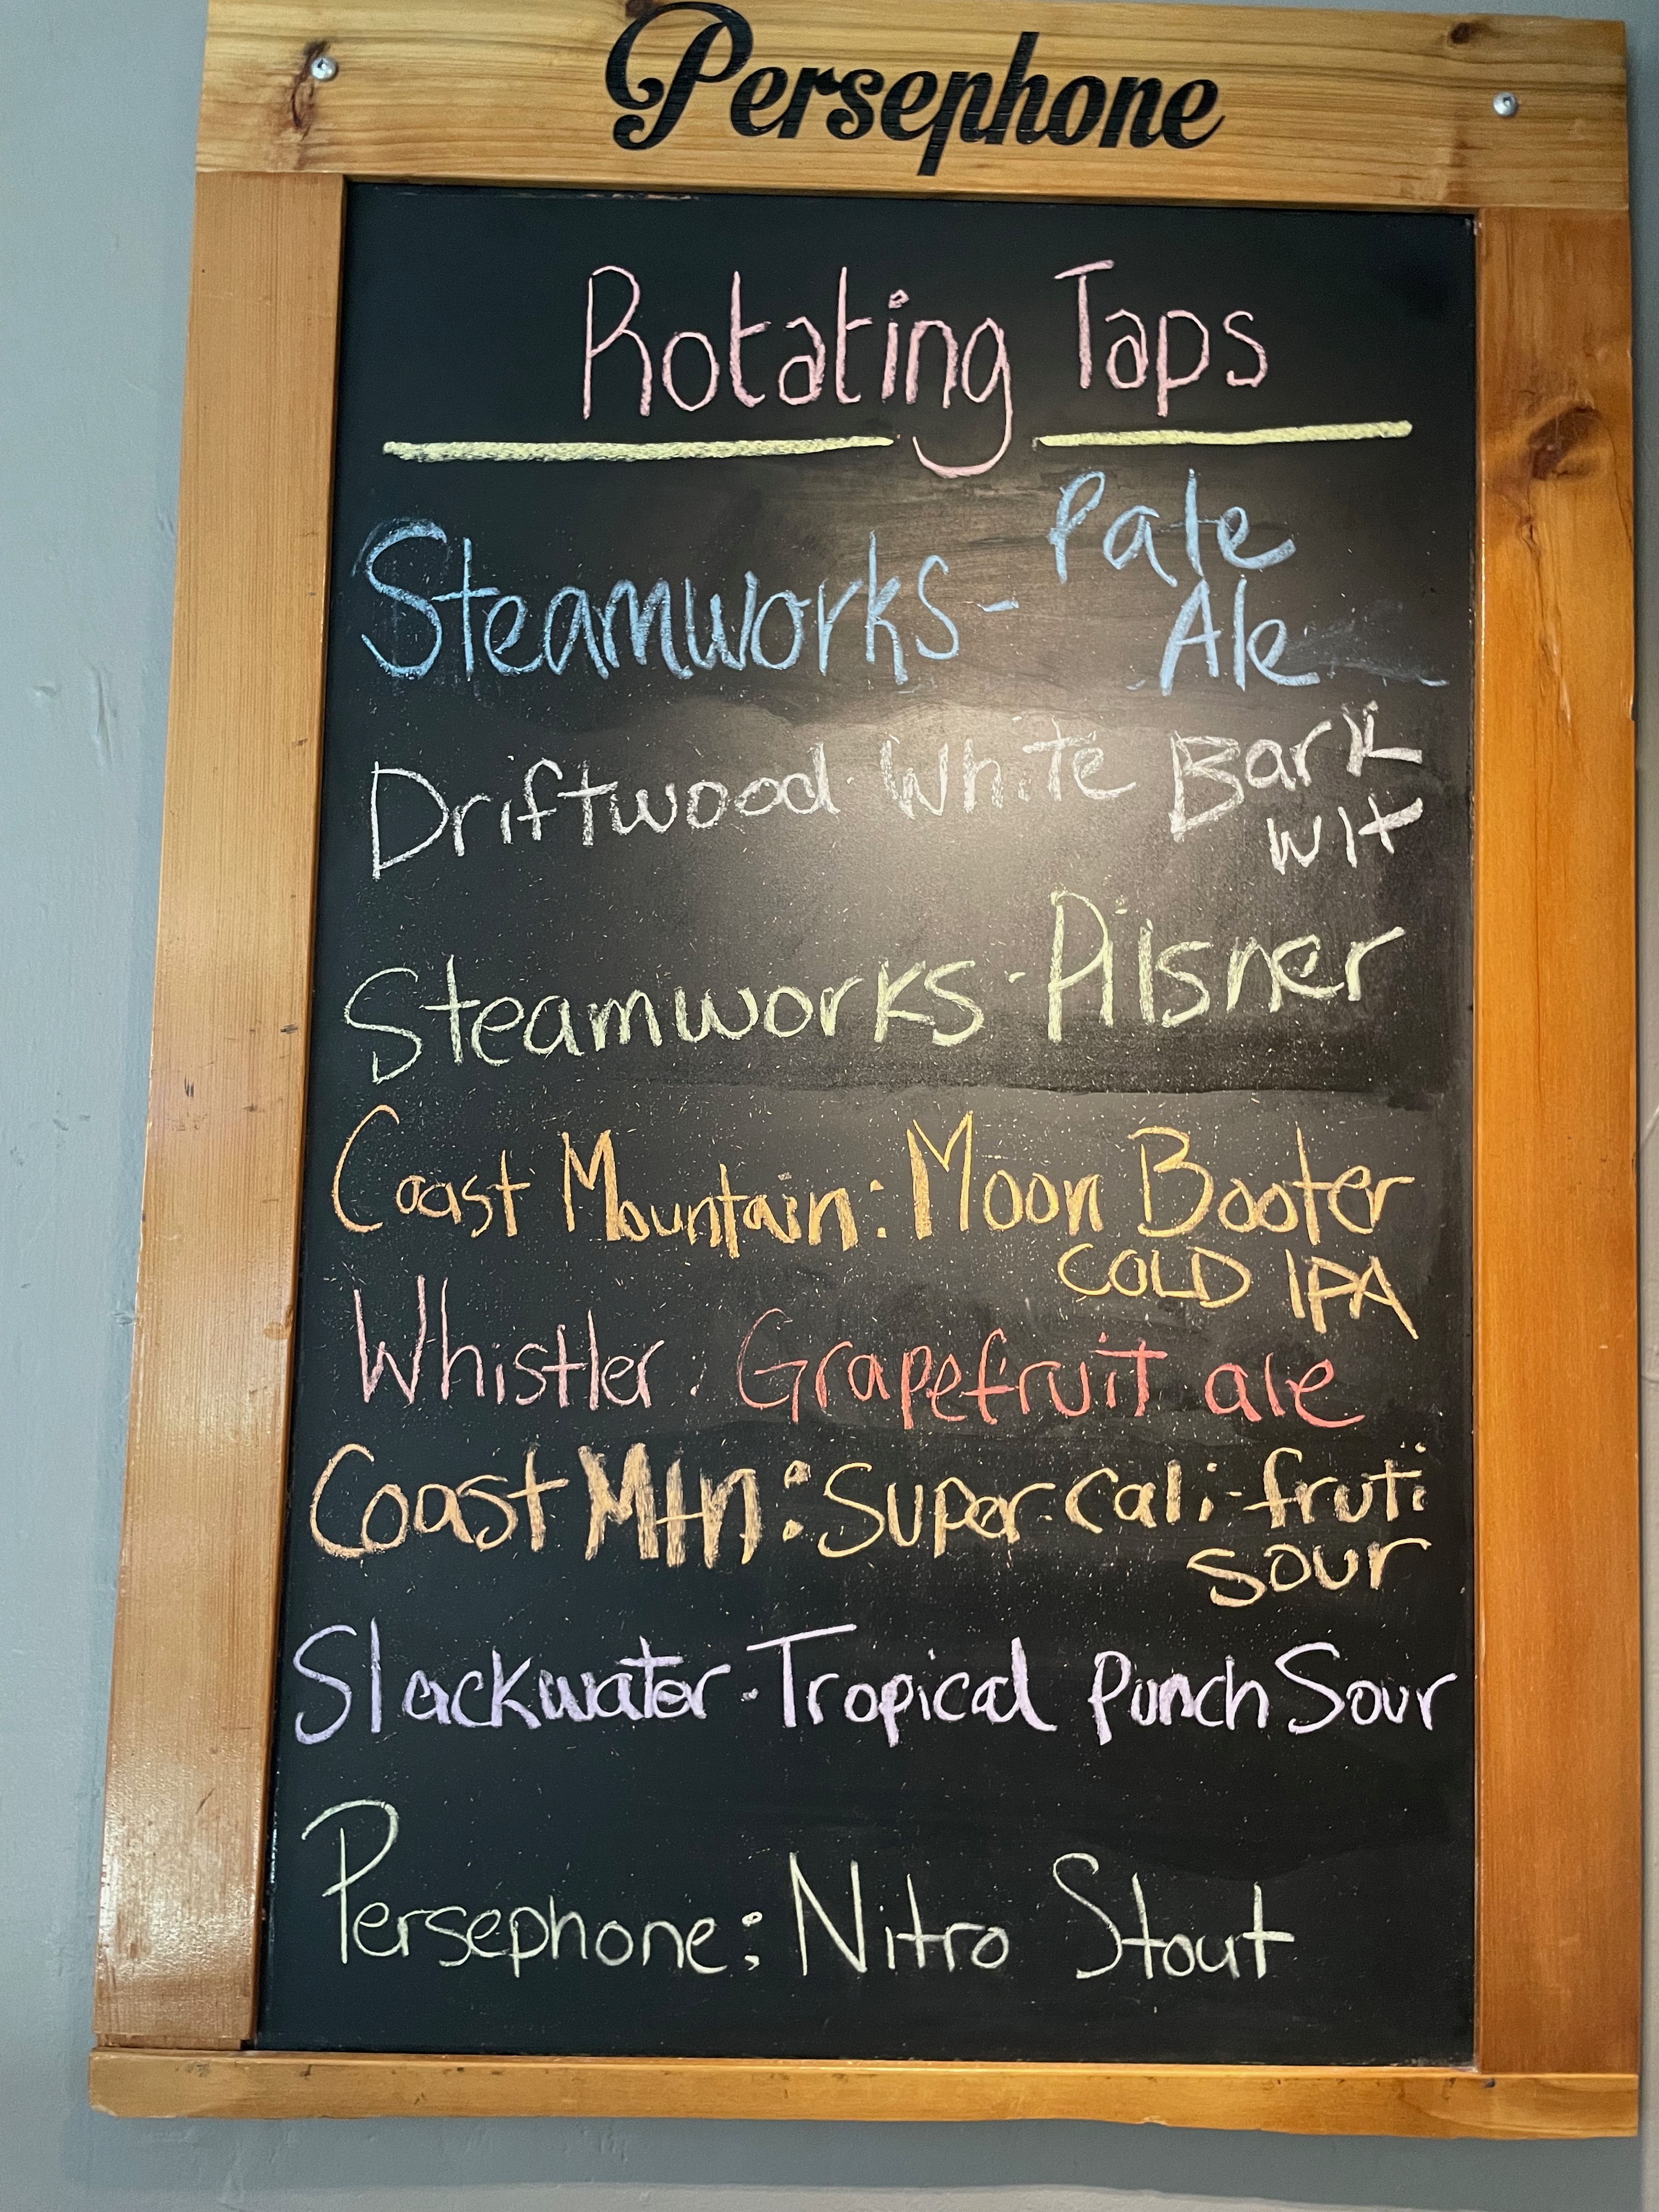 Persephone
Rotating Taps
Steamworks - Pale
Ale
Driftwood - White Bark
wit
Steamworks - Pilsner
Coast Mountain: Moon Booter
COLD IPA
Whistler: Grapefruit ale
Coast Mtn: Super-cali-fruti
sour
Slackwater - Tropical Punch Sour
Persephone: Nitro Stout